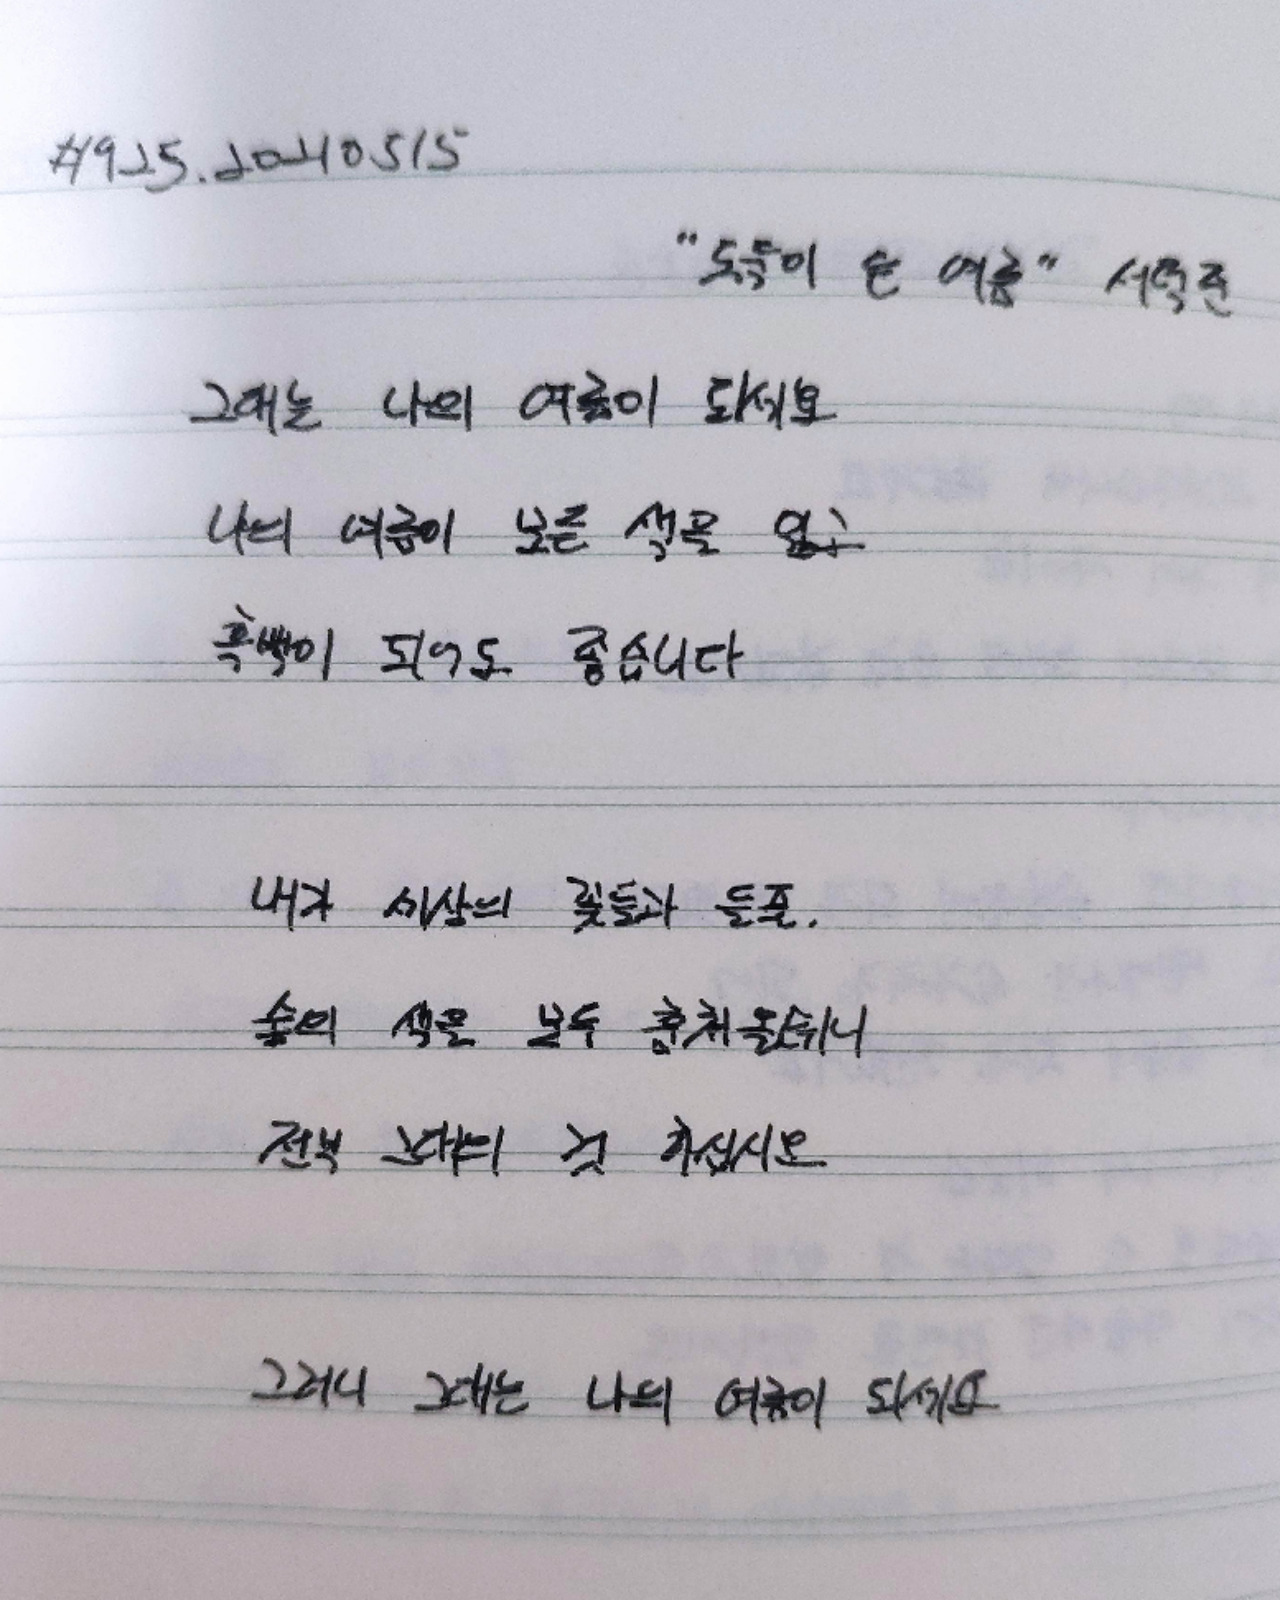 #925.20240515
"도둑이 든 여름" 서덕준
그대는 나의 여름이 되세요
나의 여름이 모든 색을 잃고
흑백이 되어도 좋습니다
내가 세상의 꽃들과 들풀,
숲의 색을 모두 훔쳐올테니
전부 그대의 것 하십시오
그러니 그대는 나의 여름이 되세요